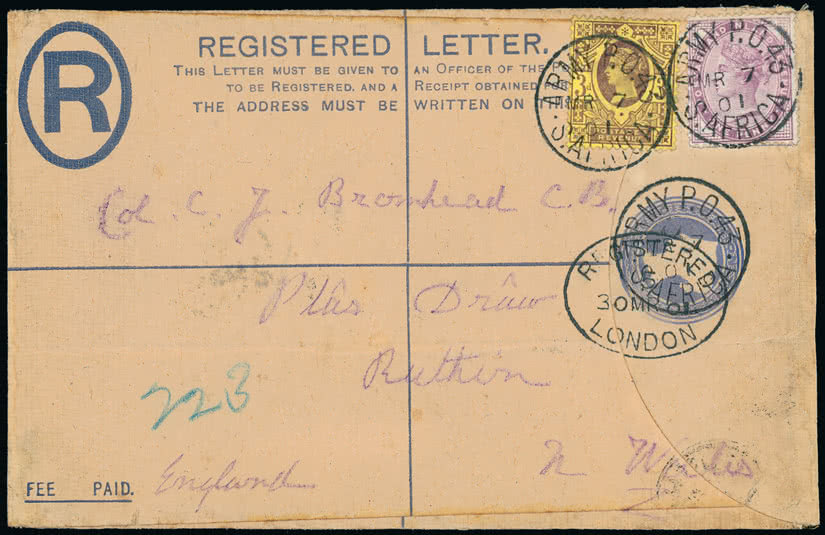 R
REGISTERED LETTER.
THIS LETTER MUST BE GIVEN TO AN OFFICER OF THE
TO BE REGISTERED, AND A RECEIPT OBTAINED
THE ADDRESS MUST BE WRITTEN ON
ARMY P.O.43
MR 7
01
S.AFRICA.
ARMY P.O.43
MR 7
01
S.AFRICA.
Col. C. J. Bromhead C.B.
ARMY P.O.43
01
S.AFRICA.
REGISTERED
30 MR 01
LONDON
Plâs Drâw
Ruthin
223
N Wales
England
FEE PAID.